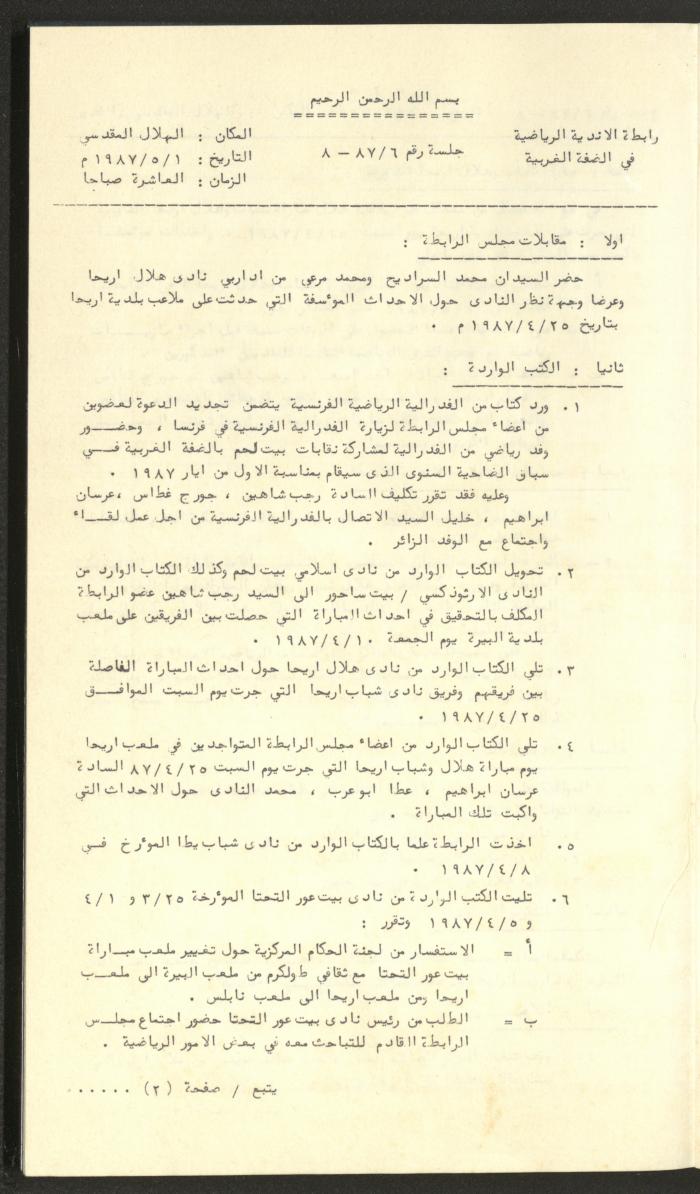 بسم الله الرحمن الرحيم
رابطة الاندية الرياضية
في الضفة الغربية
جلسة رقم ٨٧/٦ - ٨
المكان : الهلال المقدسي
التاريخ : ١٩٨٧/٥/١ م
الزمان : العاشرة صباحا
اولا : مقابلات مجلس الرابطة :
حضر السيدان محمد السراديح ومحمد مرعي من اداريي نادى هلال اريحا
وعرضا وجهة نظر النادى حول الاحداث المؤسفة التي حدثت على ملاعب بلدية اريحا
بتاريخ ١٩٨٧/٤/٢٥ م .
ثانيا : الكتب الواردة :
١. ورد كتاب من الفدرالية الرياضية الفرنسية يتضمن تجديد الدعوة لعضوين
من اعضاء مجلس الرابطة لزيارة الفدرالية الفرنسية في فرنسا ، وحضــور
وفد رياضي من الفدرالية لمشاركة نقابات بيت لحم بالضفة الغربية فــي
سباق الضاحية السنوى الذى سيقام بمناسبة الاول من ايار ١٩٨٧ .
وعليه فقد تقرر تكليف السادة رجب شاهين ، جورج غطاس ،عرسان
ابراهيم ، خليل السيد الاتصال بالفدرالية الفرنسية من اجل عمل لقــاء
واجتماع مع الوفد الزائر .
٢. تحويل الكتاب الوارد من نادى اسلامي بيت لحم وكذلك الكتاب الوارد من
النادى الارثوذكسي / بيت ساحور الى السيد رجب شاهين عضو الرابطة
المكلف بالتحقيق في احداث المباراة التي حصلت بين الفريقين على ملعب
بلدية البيرة يوم الجمعة ١٩٨٧/٤/١٠ .
٣. تلي الكتاب الوارد من نادى هلال اريحا حول احداث المباراة الفاصلة
بين فريقهم وفريق نادى شباب اريحا التي جرت يوم السبت الموافــق
١٩٨٧/٤/٢٥ .
٤. تلي الكتاب الوارد من اعضاء مجلس الرابطة المتواجدين في ملعب اريحا
يوم مباراة هلال وشباب اريحا التي جرت يوم السبت ٨٧/٤/٢٥ السادة
عرسان ابراهيم ، عطا ابو عرب ، محمد النادى حول الاحداث التي
واكبت تلك المباراة .
٥. اخذت الرابطة علما بالكتاب الوارد من نادى شباب يطا المؤرخ فــي
١٩٨٧/٤/٨ .
٦. تليت الكتب الواردة من نادى بيت عور التحتا المؤرخة ٣/٢٥ و ٤/١
و ١٩٨٧/٤/٥ وتقرر :
أ = الاستفسار من لجنة الحكام المركزية حول تغيير ملعب مبــاراة
بيت عور التحتا مع ثقافي طولكرم من ملعب البيرة الى ملعــب
اريحا ومن ملعب اريحا الى ملعب نابلس .
ب = الطلب من رئيس نادى بيت عور التحتا حضور اجتماع مجلــس
الرابطة القادم للتباحث معه في بعض الامور الرياضية .
يتبع / صفحة (٢) ......